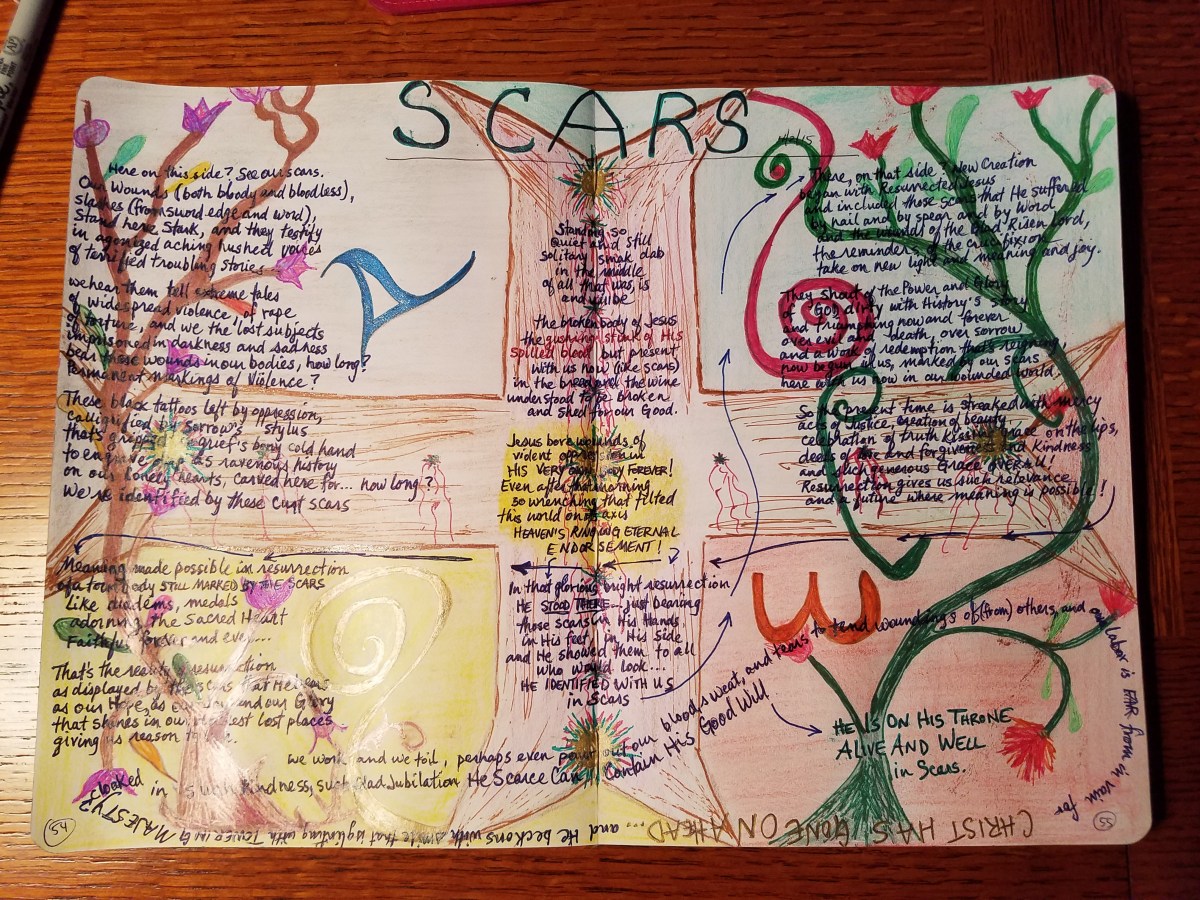 SCARS
Here on this side? See our scars.
Our Wounds (both bloody and bloodless),
slashes (from sword edge and word),
Stand here Stark, and they testify
in agonized aching rushed voices
of terrified troubling stories
we hear them tell extreme tales
of widespread violence, of rape
of torture, and we the lost subjects
imprisoned in darkness and sadness
beds these wounds in our bodies, how long?
Permanent markings of Violence?
These black tattoos left by oppression,
calligraphied by Sorrow's stylus
that's gripped grief's bony cold hand
to ravenous history
on our lonely hearts, carved here for... how long?
We're identified by these Curst scars
Meaning made possible in resurrection
of a torn body STILL MARKED BY THE SCARS
Like diadems, medals
adorning The Sacred Heart
Faithful forever and ever....
That's the reality resurrection
as displayed by the scars that He bears
as our Hope, as our Joy and our Glory
that shines in our lost places
giving us reason to
Standing so
Quiet and still
solitary smak dab
in the middle
of all that was, is
and will be
the broken body of Jesus
the gushing stink of His
spilled blood, but present
with us now (like scars)
in the bread and the wine
understood to be broken
and shed for our Good.
Jesus bore wounds of
violent oppression in
HIS VERY OWN BODY FOREVER!
Even after that morning
so wrenching that tilted
this world on its axis
HEAVEN'S RINGING ETERNAL
ENDORSEMENT!
In that glorious bright resurrection
HE STOOD THERE - just bearing
those scars in His Hands
in His feet, in His Side
and He showed them to all
who would look...
HE IDENTIFIED WITH US
in Scars
There, on that side? New Creation
began with Resurrected Jesus
and included those Scars that He suffered
by nail and by spear and by Word
and the wounds of the Glad Risen Lord,
the reminders of the crucifixion
take on new light and meaning and joy.
They Shout of the Power and Glory
of God, dirty with History's Story
and triumphing now and forever
over evil and death over sorrow
and a work of redemption that's reigning
now begun in us, marked by our scars
here with us now in our wounded world
So the present time is streaked with mercy
acts of Justice, creation of beauty,
celebration of truth Kissing on the lips,
deeds of love and forgiveness and Kindness
and such generous Grace OVERALL!
Resurrection gives us such relevance
and a future where meaning is possible!
we work and we toil, perhaps even pour out our blood, sweat, and tears to tend woundings of (from) others, and our labor is FAR from in vain for
CHRIST HAS GONE ON AHEAD
.... and He beckons with a smile that is glinting with TOWERING MAJESTY?
cloaked in Such Kindness, such Glad Jubilation He Scarce Can Contain His Good Will
HE IS ON HIS THRONE
ALIVE AND WELL
in Scars.
54
55